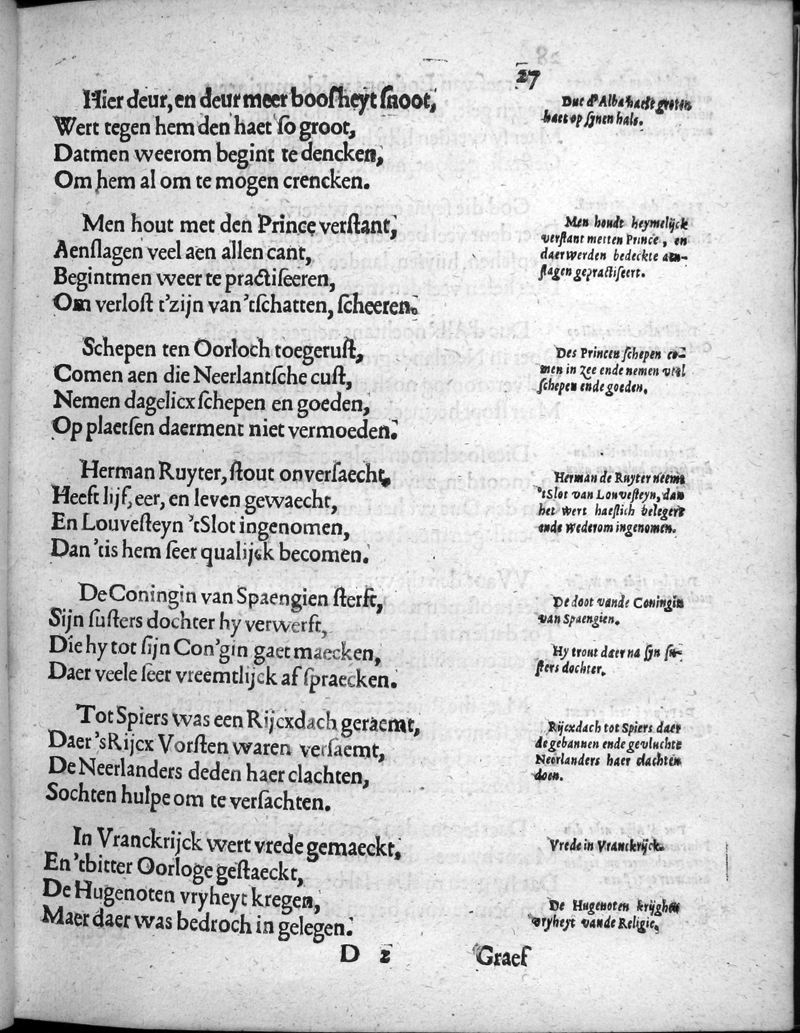 27
Hier deur, en deur meer boosheyt snoot,
Wert tegen hem den haet so groot,
Datmen weerom begint te dencken,
Om hem al om te mogen crencken.
Duc d'Alba haelt grooten
haet op sijnen hals.
Men hout met den Prince verstant,
Aenslagen veel aen allen cant,
Begintmen weer te practiseeren,
Om verlost t'zijn van 'tschatten, scheeren.
Men houdt heymelijck
verstant metten Prince, en
daer werden bedeckte aen-
slagen gepractiseert.
Schepen ten Oorloch toegerust,
Comen aen die Neerlantsche cust,
Nemen dagelicx schepen en goeden,
Op plaetsen daerment niet vermoeden.
Des Princen schepen co-
men in zee ende nemen veel
schepen ende goeden.
Herman Ruyter, stout onversaecht,
Heeft lijf, eer, en leven gewaecht,
En Louvesteyn 'tSlot ingenomen,
Dan 'tis hem seer qualijck becomen.
Herman de Ruyter neemt
'tSlot van Louvesteyn, dan
het wert haestich belegert
ende wederom ingenomen.
De Coningin van Spaengien sterft,
Sijn susters dochter hy verwerft,
Die hy tot sijn Con'gin gaet maecken,
Daer veele seer vreemtlijck af spraecken.
De doot vande Coningin
van Spaengien.
Hy trout daer na sijn su-
sters dochter.
Tot Spiers was een Rijcxdach geraemt,
Daer 'sRijcx Vorsten waren versaemt,
De Neerlanders deden haer clachten,
Sochten hulpe om te versachten.
Rijcxdach tot Spiers daer
de gebannen ende gevluchte
Neerlanders haer clachten
doen.
In Vranckrijck wert vrede gemaeckt,
En 'tbitter Oorloge gestaeckt,
De Hugenoten vryheyt kregen,
Maer daer was bedroch in gelegen.
Vrede in Vranckrijck.
De Hugenoten krijghen
vryheyt vande Religie.
D 2
Graef